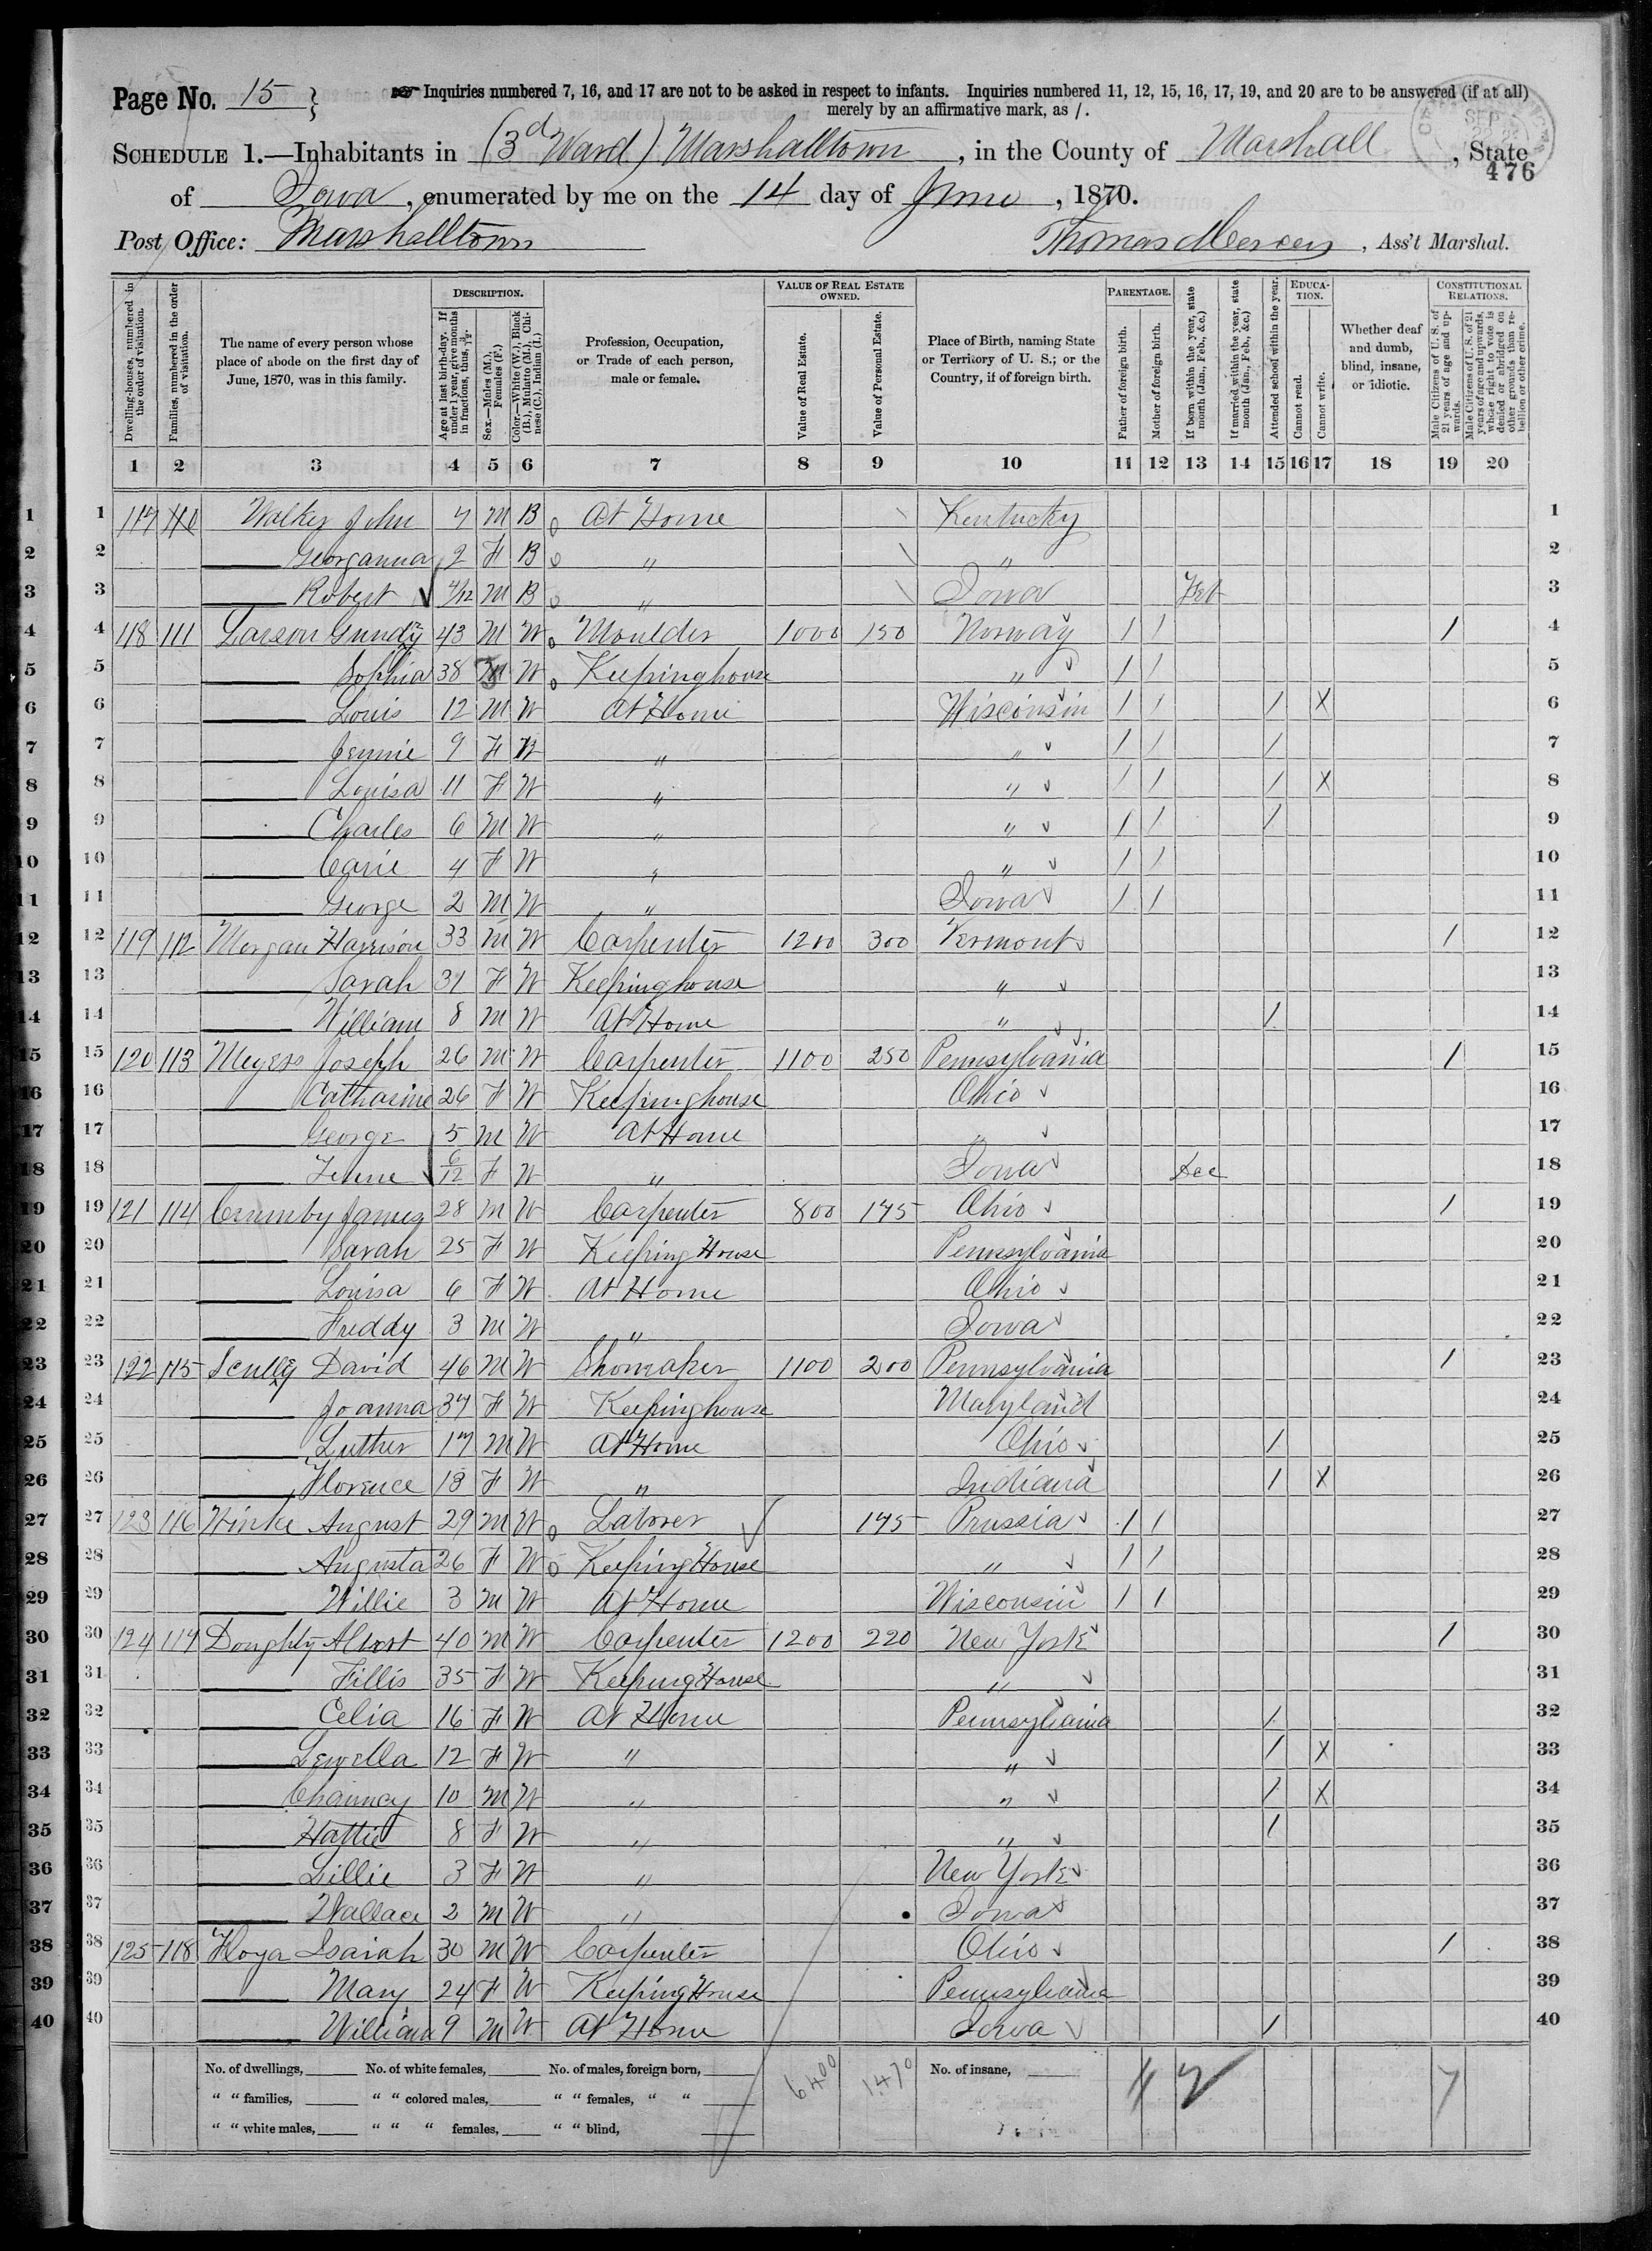 Page No. 15 } Inquiries numbered 7, 16, and 17 are not to be asked in respect to infants. Inquiries numbered 11, 12, 15, 16, 17, 19, and 20 are to be answered (if at all)
merely by an affirmative mark, as /.
SCHEDULE 1.—Inhabitants in (3d Ward) Marshalltown, in the County of Marshall, State
476
of Iowa, enumerated by me on the 14 day of June, 1870.
Post Office: Marshalltown Thomas Mercer, Ass't Marshal.
Dwelling-houses, numbered in the order of visitation.
Families, numbered in the order of visitation.
The name of every person whose place of abode on the first day of June, 1870, was in this family.
DESCRIPTION.
Age at last birth-day. If under 1 year, give months in fractions, thus, 3/12.
Sex.—Males (M.), Females (F.)
Color.—White (W.), Black (B.), Mulatto (M.), Chinese (C.), Indian (I.)
Profession, Occupation, or Trade of each person, male or female.
VALUE OF REAL ESTATE OWNED.
Value of Real Estate.
Value of Personal Estate.
Place of Birth, naming State or Territory of U. S.; or the Country, if of foreign birth.
PARENTAGE.
Father of foreign birth.
Mother of foreign birth.
If born within the year, state month (Jan., Feb., &c.)
If married within the year, state month (Jan., Feb., &c.)
Attended school within the year.
EDUCATION.
Cannot read.
Cannot write.
Whether deaf and dumb, blind, insane, or idiotic.
CONSTITUTIONAL RELATIONS.
Male Citizens of U. S. of 21 years of age and upwards.
Male Citizens of U. S. of 21 years of age and upwards, whose right to vote is denied or abridged on other grounds than rebellion or other crime.
1 2 3 4 5 6 7 8 9 10 11 12 13 14 15 16 17 18 19 20
1 1 117 110 Walker John 7 M B At Home Kentucky 1
2 2 Georganna 2 F B " " 2
3 3 Robert 4/12 M B " Iowa Feb 3
4 4 118 111 Larson Gundy 43 M W Moulder 1000 150 Norway / / / 4
5 5 Sophia 38 F W Keepinghouse " / / 5
6 6 Louis 12 M W At Home Wisconsin / / / X 6
7 7 Jennie 9 F W " " / / / 7
8 8 Louisa 11 F W " " / / / X 8
9 9 Charles 6 M W " " / / / 9
10 10 Carie 4 F W " " / / 10
11 11 George 2 M W " Iowa / / 11
12 12 119 112 Morgan Harrison 33 M W Carpenter 1200 300 Vermont / 12
13 13 Sarah 31 F W Keepinghouse " 13
14 14 William 8 M W At Home " / 14
15 15 120 113 Meyers Joseph 26 M W Carpenter 1100 250 Pennsylvania / 15
16 16 Catharine 26 F W Keepinghouse Ohio 16
17 17 George 5 M W At Home " 17
18 18 6/12 F W " Iowa Dec 18
19 19 121 114 Crumby James 28 M W Carpenter 800 175 Ohio / 19
20 20 Sarah 25 F W Keeping House Pennsylvania 20
21 21 Louisa 6 F W At Home Ohio 21
22 22 Freddy 3 M W " Iowa 22
23 23 122 115 Scully David 46 M W Shomaker 1100 200 Pennsylvania / 23
24 24 Joanna 37 F W Keepinghouse Maryland 24
25 25 Luther 17 M W At Home Ohio / 25
26 26 Florence 13 F W " Indiana / X 26
27 27 123 116 Winke August 29 M W Laborer 175 Prussia / / 27
28 28 Augusta 26 F W Keeping House " / / 28
29 29 Willie 3 M W At Home Wisconsin / / 29
30 30 124 117 Doughty Albert 40 M W Carpenter 1200 220 New York / 30
31 31 Fillis 35 F W Keeping House " 31
32 32 Celia 16 F W At Home Pennsylvania / 32
33 33 Lewella 12 F W " " / X 33
34 34 Chauncy 10 M W " " / X 34
35 35 Hattie 8 F W " " / 35
36 36 Lillie 3 F W " New York 36
37 37 Wallace 2 M W " Iowa 37
38 38 125 118 Hoya Isaiah 30 M W Carpenter Ohio / 38
39 39 Mary 24 F W Keeping House Pennsylvania 39
40 40 William 9 M W At Home Iowa / 40
No. of dwellings, No. of white females, No. of males, foreign born, 6400 1470 No. of insane, 7
" " families, " " colored males, " " females, " "
" " white males, " " " females, " " blind,